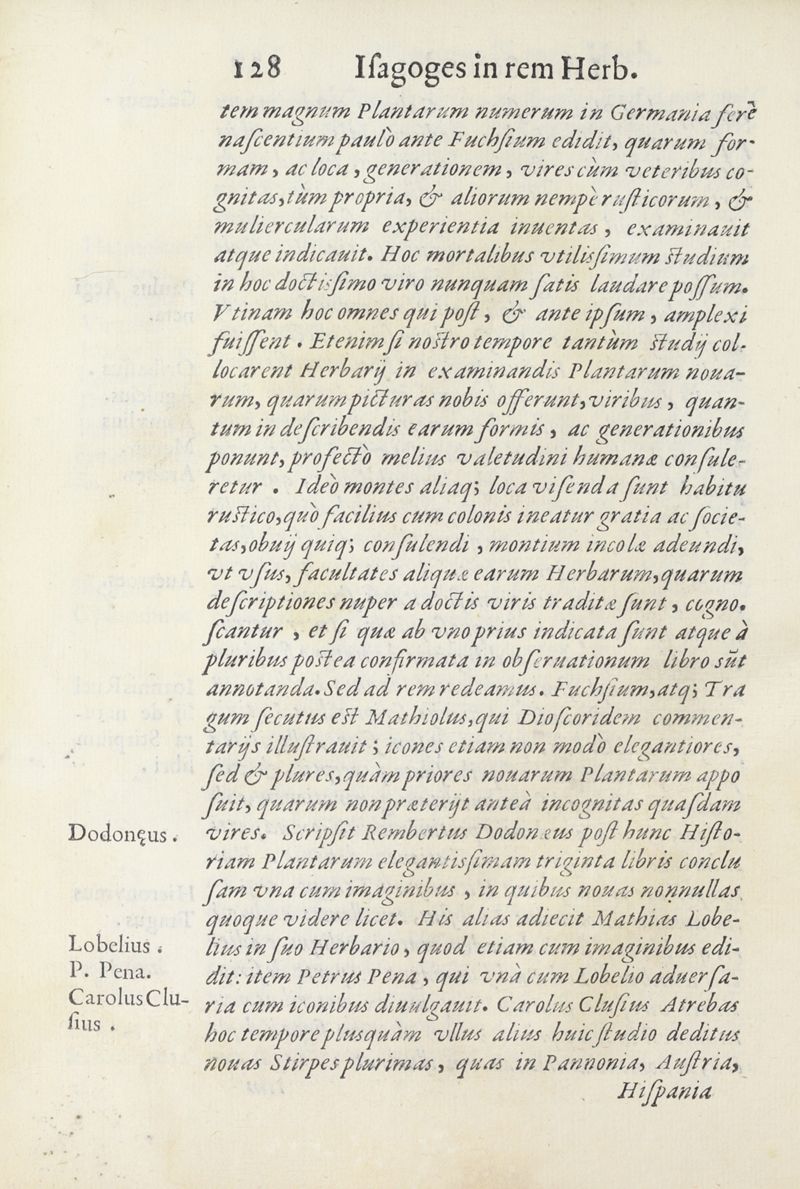 128 Iſagoges in rem Herb.
tem magnum Plantarum numerum in Germania ferè
naſcentium paulò ante Fuchſium edidit, quarum for-
mam, ac loca, generationem, vires cùm veteribus co-
gnitas, tùm propria, & aliorum nempè ruſticorum, &
muliercularum experientia inuentas, examinauit
atque indicauit. Hoc mortalibus vtilisſimum ſtudium
in hoc doctisſimo viro nunquam ſatis laudare poſſum.
Vtinam hoc omnes qui poſt, & ante ipſum, amplexi
fuiſſent. Etenim ſi noſtro tempore tantùm ſtudij col-
locarent Herbarij in examinandis Plantarum noua-
rum, quarum picturas nobis offerunt, viribus, quan-
tum in deſcribendis earum formis, ac generationibus
ponunt, profectò melius valetudini humanæ conſule-
retur. Ideò montes aliaq; loca viſenda ſunt habitu
ruſtico, quò facilius cum colonis ineatur gratia ac ſocie-
tas, obuij quiq; conſulendi, montium incolæ adeundi,
vt vſus, facultates aliquæ earum Herbarum, quarum
deſcriptiones nuper a doctis viris traditæ ſunt, cogno-
ſcantur, et ſi quæ ab vno prius indicata ſunt atque à
pluribus poſtea confirmata in obſeruationum libro sũt
annotanda. Sed ad rem redeamus. Fuchſium, atq; Tra
gum ſecutus eſt Mathiolus, qui Dioſcoridem commen-
tarijs illuſtrauit; icones etiam non modò elegantiores,
ſed & plures, quàm priores nouarum Plantarum appo
ſuit, quarum non præterijt anteà incognitas quaſdam
Dodonęus. vires. Scripſit Rembertus Dodonæus poſt hunc Hiſto-
riam Plantarum elegantisſimam triginta libris conclu
ſam vna cum imaginibus, in quibus nouas nonnullas
quoque videre licet. His alias adiecit Mathias Lobe-
Lobelius. lius in ſuo Herbario, quod etiam cum imaginibus edi-
P. Pena. dit: item Petrus Pena, qui vnà cum Lobelio aduerſa-
Carolus Clu- ria cum iconibus diuulgauit. Carolus Cluſius Atrebas
ſius. hoc tempore plusquàm vllus alius huic ſtudio deditus
nouas Stirpes plurimas, quas in Pannonia, Auſtria,
Hiſpania